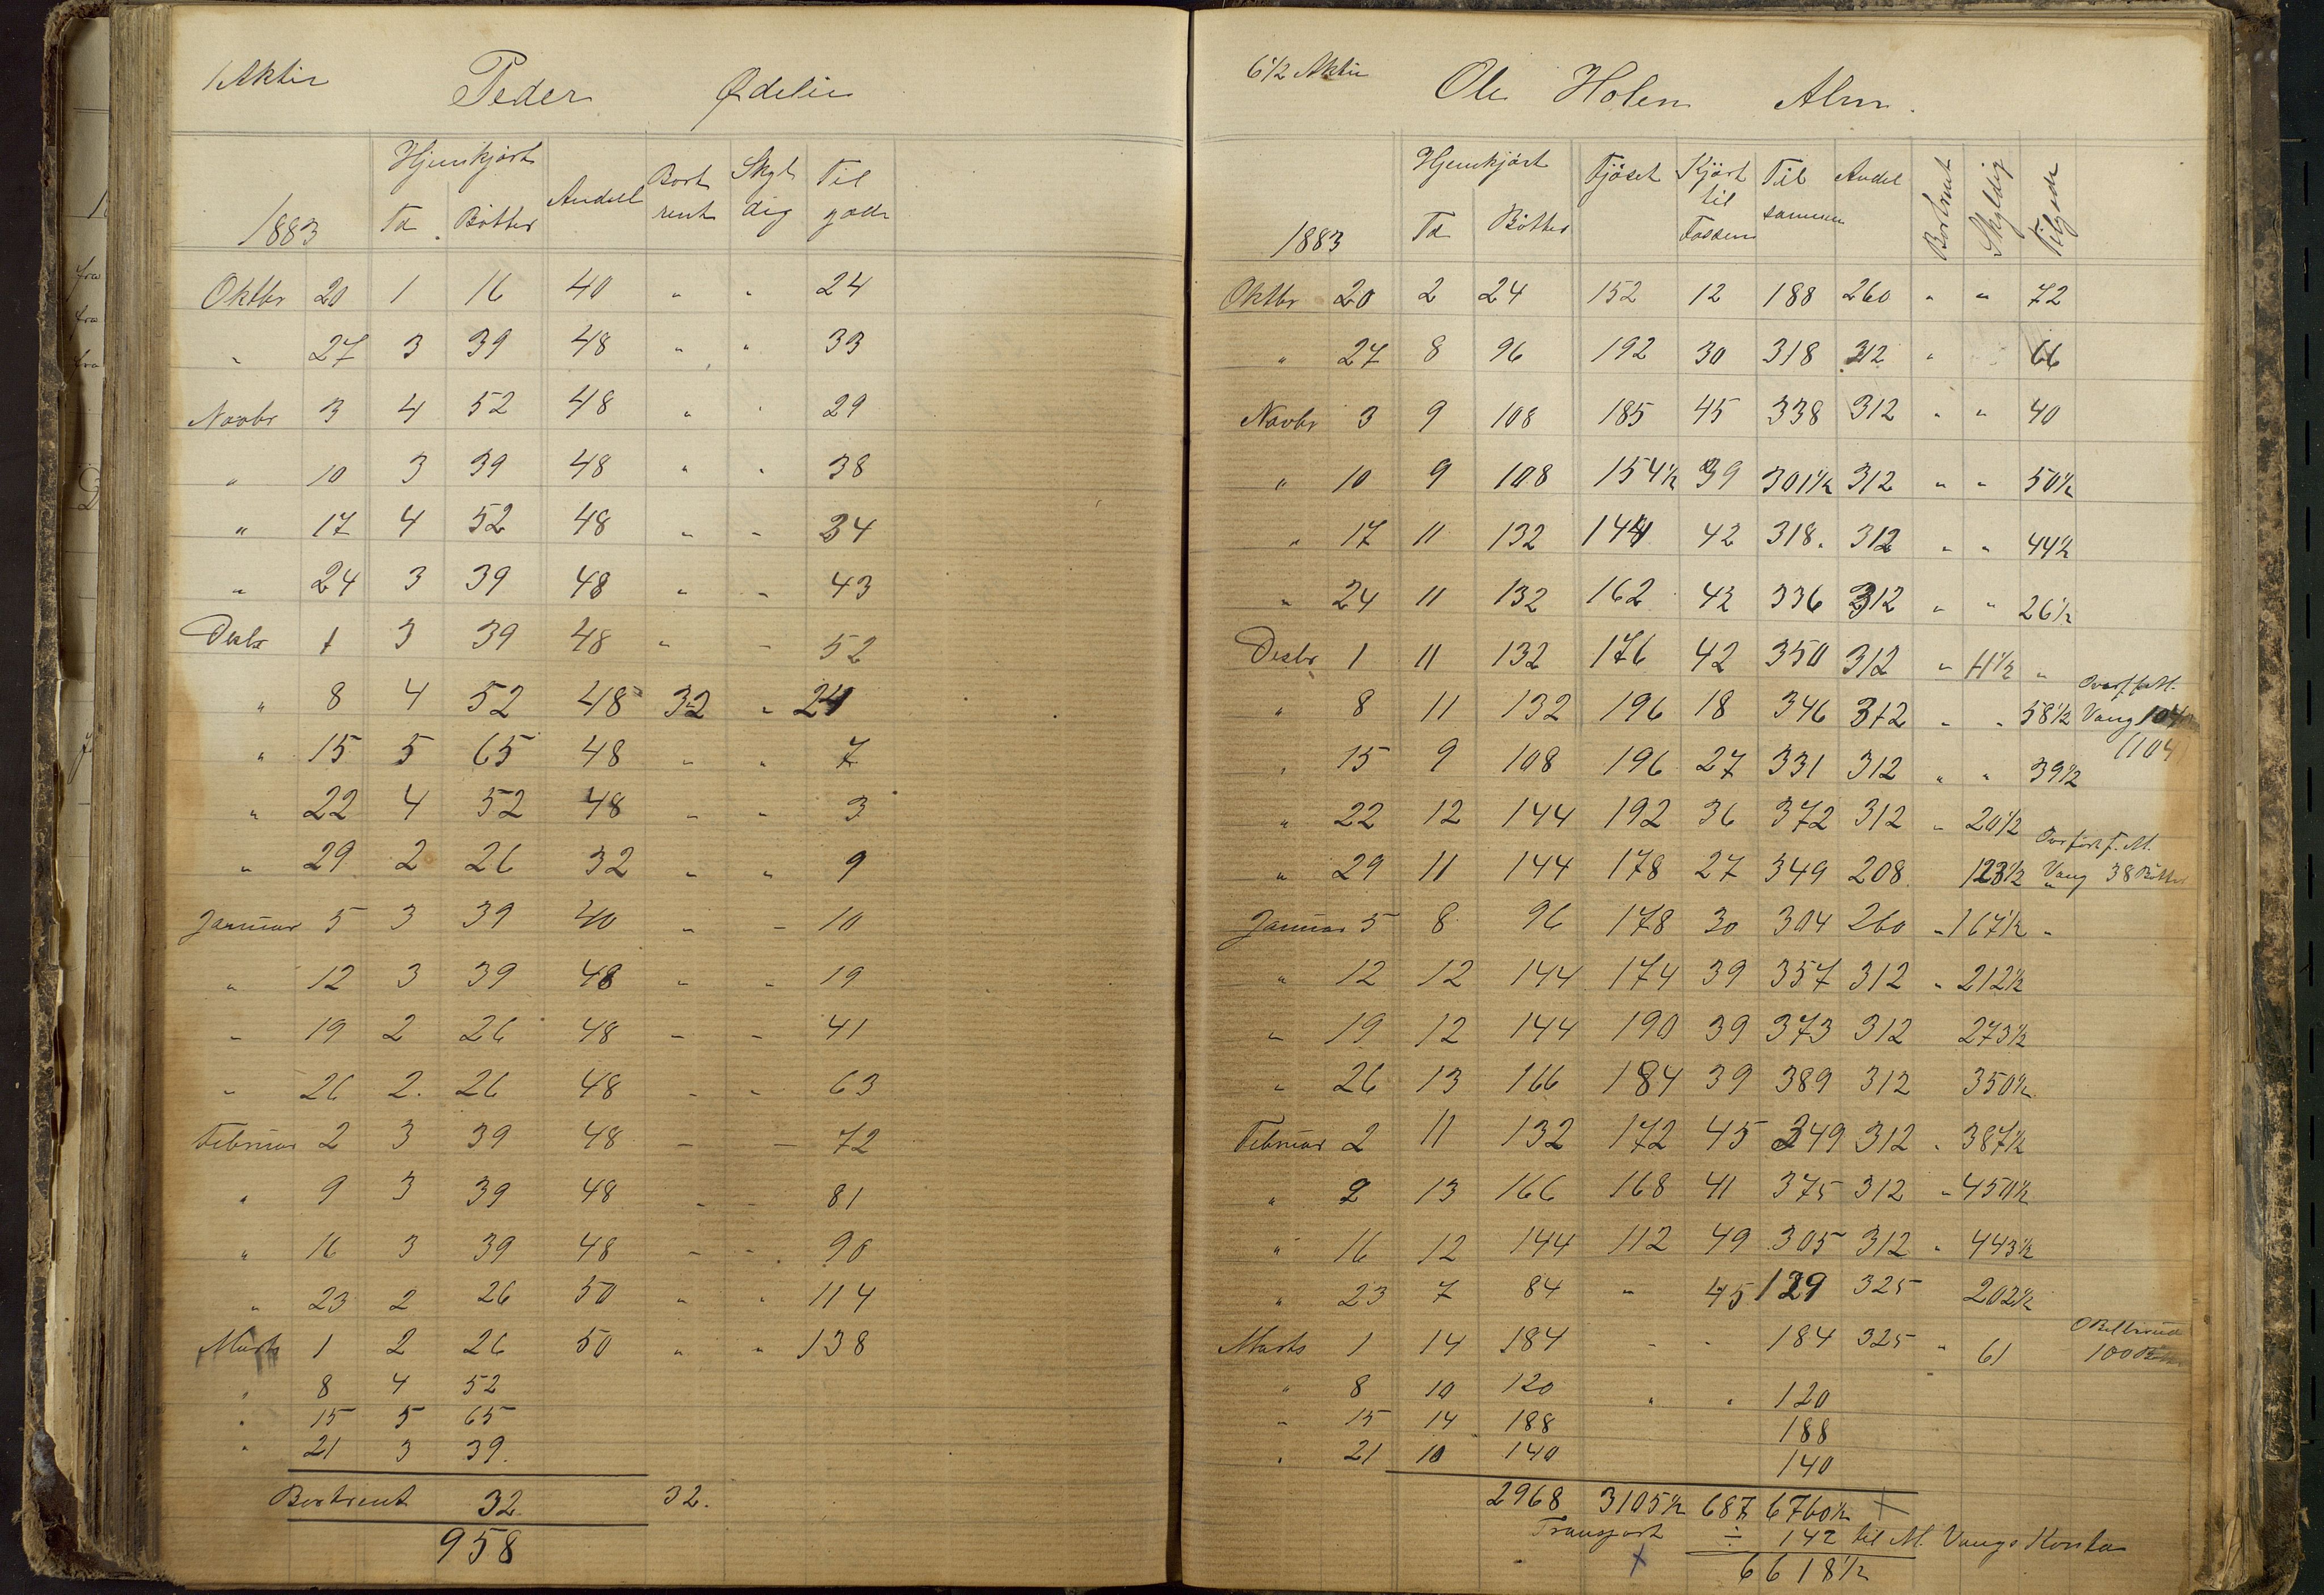 1 Aktie Peder Ødelien
Hjemkjørt
1883 Td Bøtter Andel Bort rent Skyl dig Til gode
Oktbr 20 1 16 40 " " 24
" 27 3 39 48 " " 33
Novbr 3 4 52 48 " " 29
" 10 3 39 48 " " 38
" 17 4 52 48 " " 34
" 24 3 39 48 " " 43
Desbr 1 3 39 48 " " 52
" 8 4 52 48 32 " 24
" 15 5 65 48 " " 7
" 22 4 52 48 " " 3
" 29 2 26 32 " " 9
Januar 5 3 39 40 " " 10
" 12 3 39 48 " " 19
" 19 2 26 48 " " 41
" 26 2. 26 48 " " 63
Februar 2 3 39 48 " " 72
" 9 3 39 48 " " 81
" 16 3 39 48 " " 90
" 23 2 26 50 " " 114
Marts 1 2 26 50 " " 138
" 8 4 52
" 15 5 65
" 21 3 39.
Bortrent 32 32.
958
6 1/2 Aktie Ole Holen Alm.
Hjemkjørt
1883 Td Bøtter Fjöset Kjört til Fossen Til sammen Andel Bortrent Skyldig Tilgode
Oktbr 20 2 24 152 12 188 260 " " 72
" 27 8 96 192 30 318 312 " 66
Novbr 3 9 108 185 45 338 312 " " 40
" 10 9 108 154 1/2 39 301 1/2 312 " " 50 1/2
" 17 11 132 144 42 318. 312 " " 44 1/2
" 24 11 132 162 42 336 312 " " 26 1/2
Desbr 1 11 132 176 42 350 312 " 11 1/2 "
" 8 11 132 196 18 346 312 " " 58 1/2 Vang 104
(104)
" 15 9 108 196 27 331 312 " " 39 1/2
" 22 12 144 192 36 372 312 " 20 1/2
Overført f. M.
" 29 11 144 178 27 349 208 123 1/2 " Vang 38 Bøtter
Januar 5 8 96 178 30 304 260 " 167 1/2 "
" 12 12 144 174 39 357 312 " 212 1/2
" 19 12 144 190 39 373 312 273 1/2
" 26 13 166 184 39 389 312 350 1/2
Februar 2 11 132 172 45 349 312 " 387 1/2
" 9 13 166 168 41 375 312 " 450 1/2
" 16 12 144 112 49 305 312 " 443 1/2
" 23 7 84 " 45 129 325 202 1/2
Marts 1 14 184 " " 184 325 " 61 100
" 8 10 120 " " 120
" 15 14 188 188
" 21 10 140 140
2968 3105 1/2 687 6760 1/2 +
Transport ÷ 142 til M. Vangs Konto
+ 6618 1/2